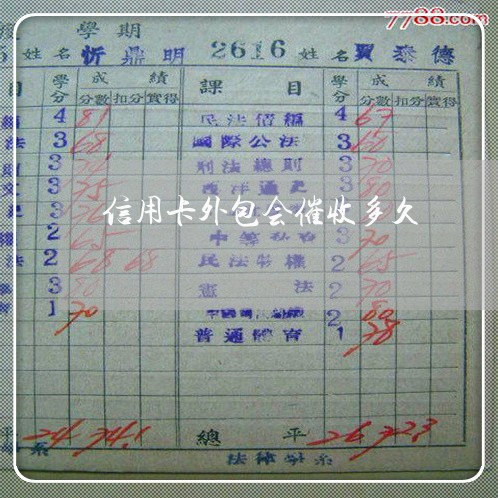 7788.com
學期
姓名 忻鼎明 2616 姓名 賈泰德
目 學分 成績 課目 學分 成績
分數 扣分 實得 分數 扣分 實得
4 81 民法債編 4 67
法 3 68 國際公法 3 60
3 刑法總則 3 70
文 3 75 西洋通史 3 80
信用卡外包会催收多久
2 65 3 70
法 2 68 68 民法物權 2 65
3 80 憲法 2 70
1 70 2 80
普通體育 1 78
平 24 74.1 總平 26 72.3
系 法律學系